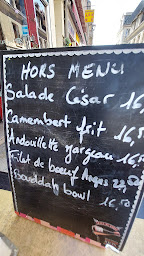 HORS MENU
Salade César 16,
Camembert frit 16,
Andouillette 16,
Filet de boeuf Angus 22,
Bouddah bowl 16,50